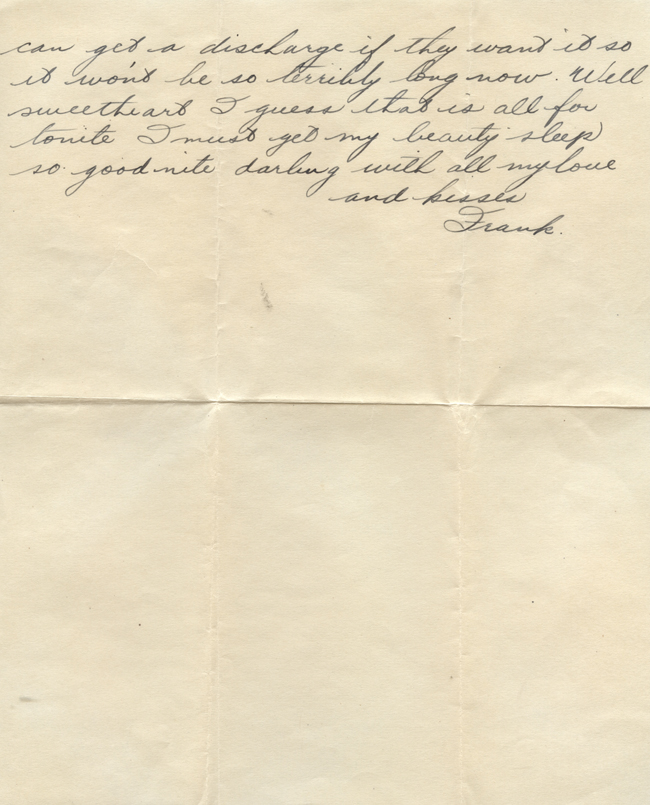 can get a discharge if they want it so
it won't be so terribly long now. Well
sweetheart I guess that is all for
tonite I must get my beauty sleep
so good nite darling with all my love
and kisses
Frank.